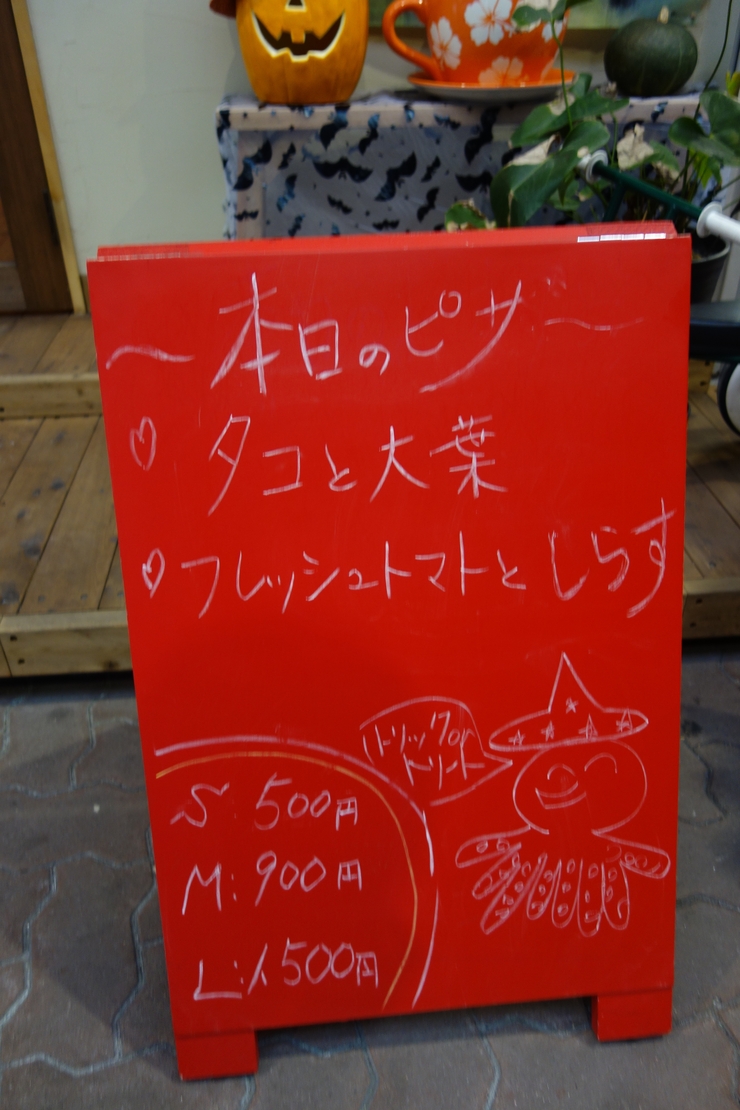 ~本日のピザ~
♡ タコと大葉
♡ フレッシュトマトとしらす
トリックor
トリート
S: 500円
M: 900円
L: 1500円